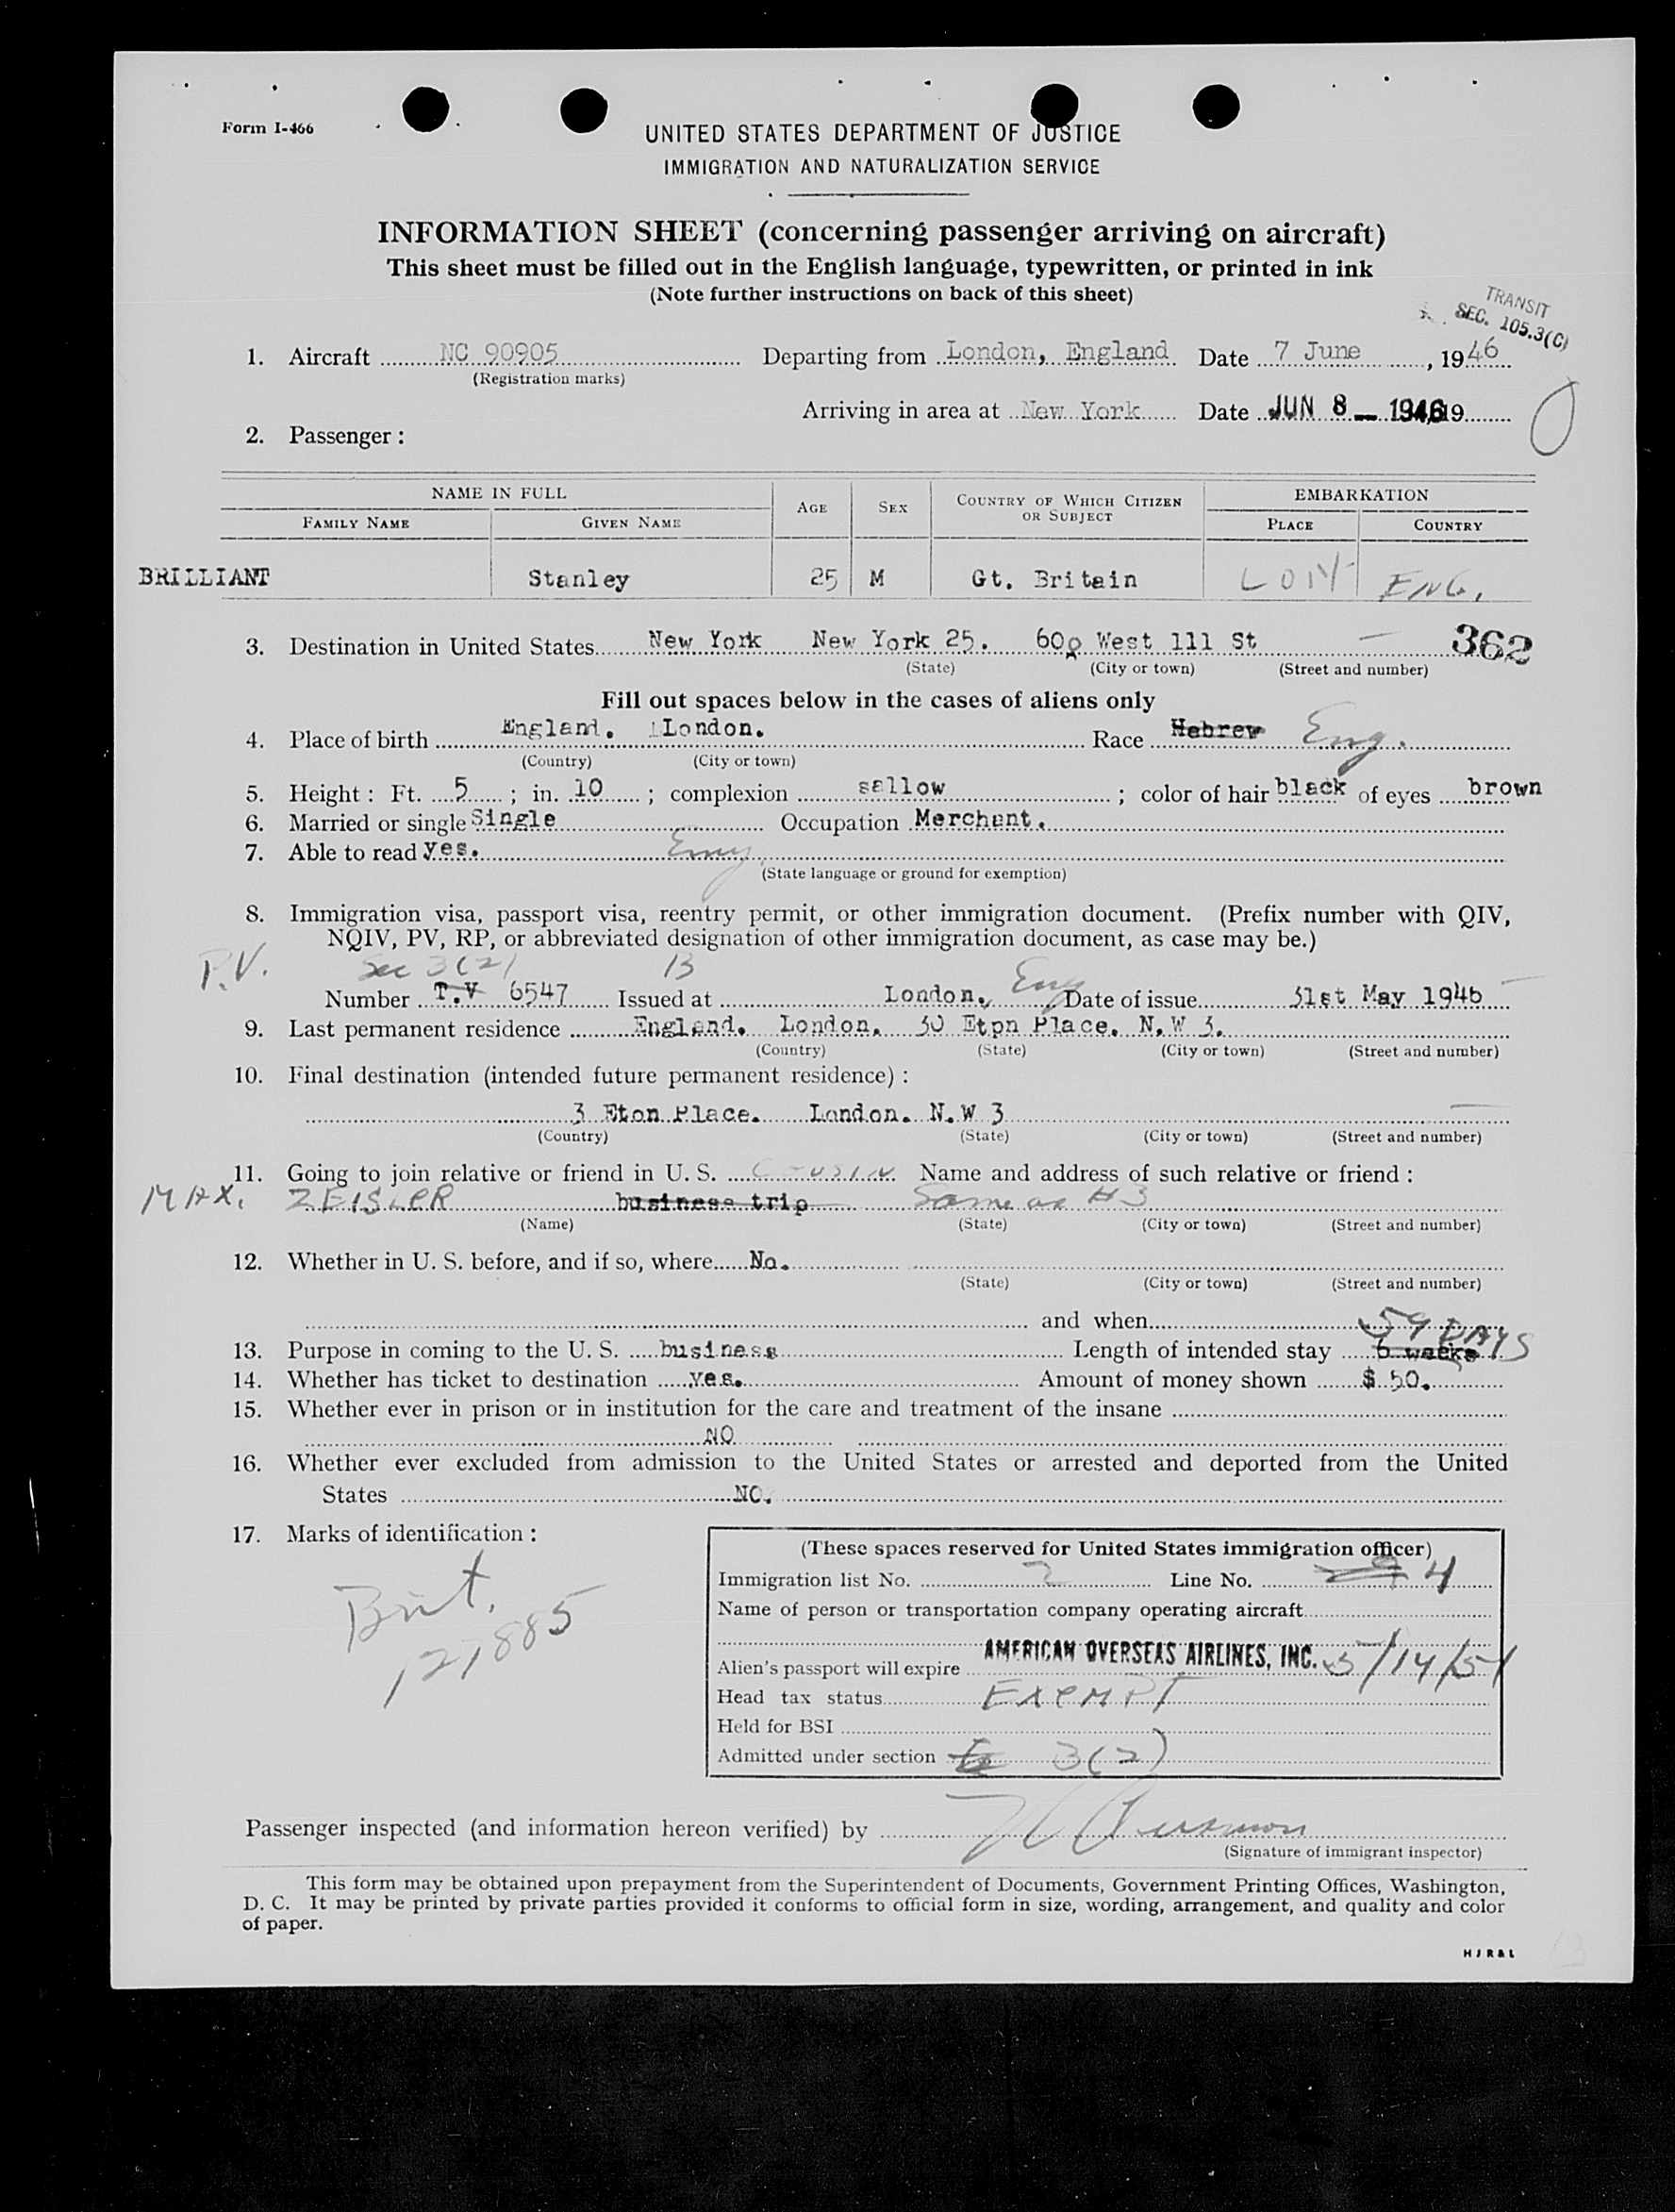 Form I-466
UNITED STATES DEPARTMENT OF JUSTICE
IMMIGRATION AND NATURALIZATION SERVICE
INFORMATION SHEET (concerning passenger arriving on aircraft)
This sheet must be filled out in the English language, typewritten, or printed in ink
(Note further instructions on back of this sheet)
TRANSIT
SEC. 105.3(C)
1. Aircraft NC 90905 Departing from London, England Date 7 June, 1946
(Registration marks)
Arriving in area at New York Date JUN 8 - 1946 19
2. Passenger:
NAME IN FULL AGE SEX COUNTRY OF WHICH CITIZEN OR SUBJECT EMBARKATION
FAMILY NAME GIVEN NAME PLACE COUNTRY
BRILLIANT Stanley 25 M Gt. Britain LON ENG.
3. Destination in United States New York New York 25. 600 West 111 St 362
(State) (City or town) (Street and number)
Fill out spaces below in the cases of aliens only
4. Place of birth England. London. Race Hebrew Eng.
(Country) (City or town)
5. Height: Ft. 5; in. 10; complexion sallow; color of hair black of eyes brown
6. Married or single Single Occupation Merchant.
7. Able to read yes. Eng
(State language or ground for exemption)
8. Immigration visa, passport visa, reentry permit, or other immigration document. (Prefix number with QIV,
NQIV, PV, RP, or abbreviated designation of other immigration document, as case may be.)
P.V. Sec 3(2) B
Number T.V 6547 Issued at London, Eng Date of issue 31st May 1946
9. Last permanent residence England. London. 30 Etpn Place. N.W 3.
(Country) (State) (City or town) (Street and number)
10. Final destination (intended future permanent residence):
3 Eton Place. London. N.W 3
(Country) (State) (City or town) (Street and number)
11. Going to join relative or friend in U. S. COUSIN Name and address of such relative or friend:
MAX. ZEISLER business trip Same as #3
(Name) (State) (City or town) (Street and number)
12. Whether in U. S. before, and if so, where No.
(State) (City or town) (Street and number)
and when
13. Purpose in coming to the U. S. business Length of intended stay 6 weeks 59 DAYS
14. Whether has ticket to destination yes. Amount of money shown $ 50.
15. Whether ever in prison or in institution for the care and treatment of the insane
NO
16. Whether ever excluded from admission to the United States or arrested and deported from the United
States NO.
17. Marks of identification:
Brit.
121885
(These spaces reserved for United States immigration officer)
Immigration list No. 2 Line No. 4
Name of person or transportation company operating aircraft
AMERICAN OVERSEAS AIRLINES, INC.
Alien's passport will expire 5/14/51
Head tax status EXEMPT
Held for BSI
Admitted under section 3(2)
Passenger inspected (and information hereon verified) by
(Signature of immigrant inspector)
This form may be obtained upon prepayment from the Superintendent of Documents, Government Printing Offices, Washington,
D. C. It may be printed by private parties provided it conforms to official form in size, wording, arrangement, and quality and color
of paper.
HJR&L